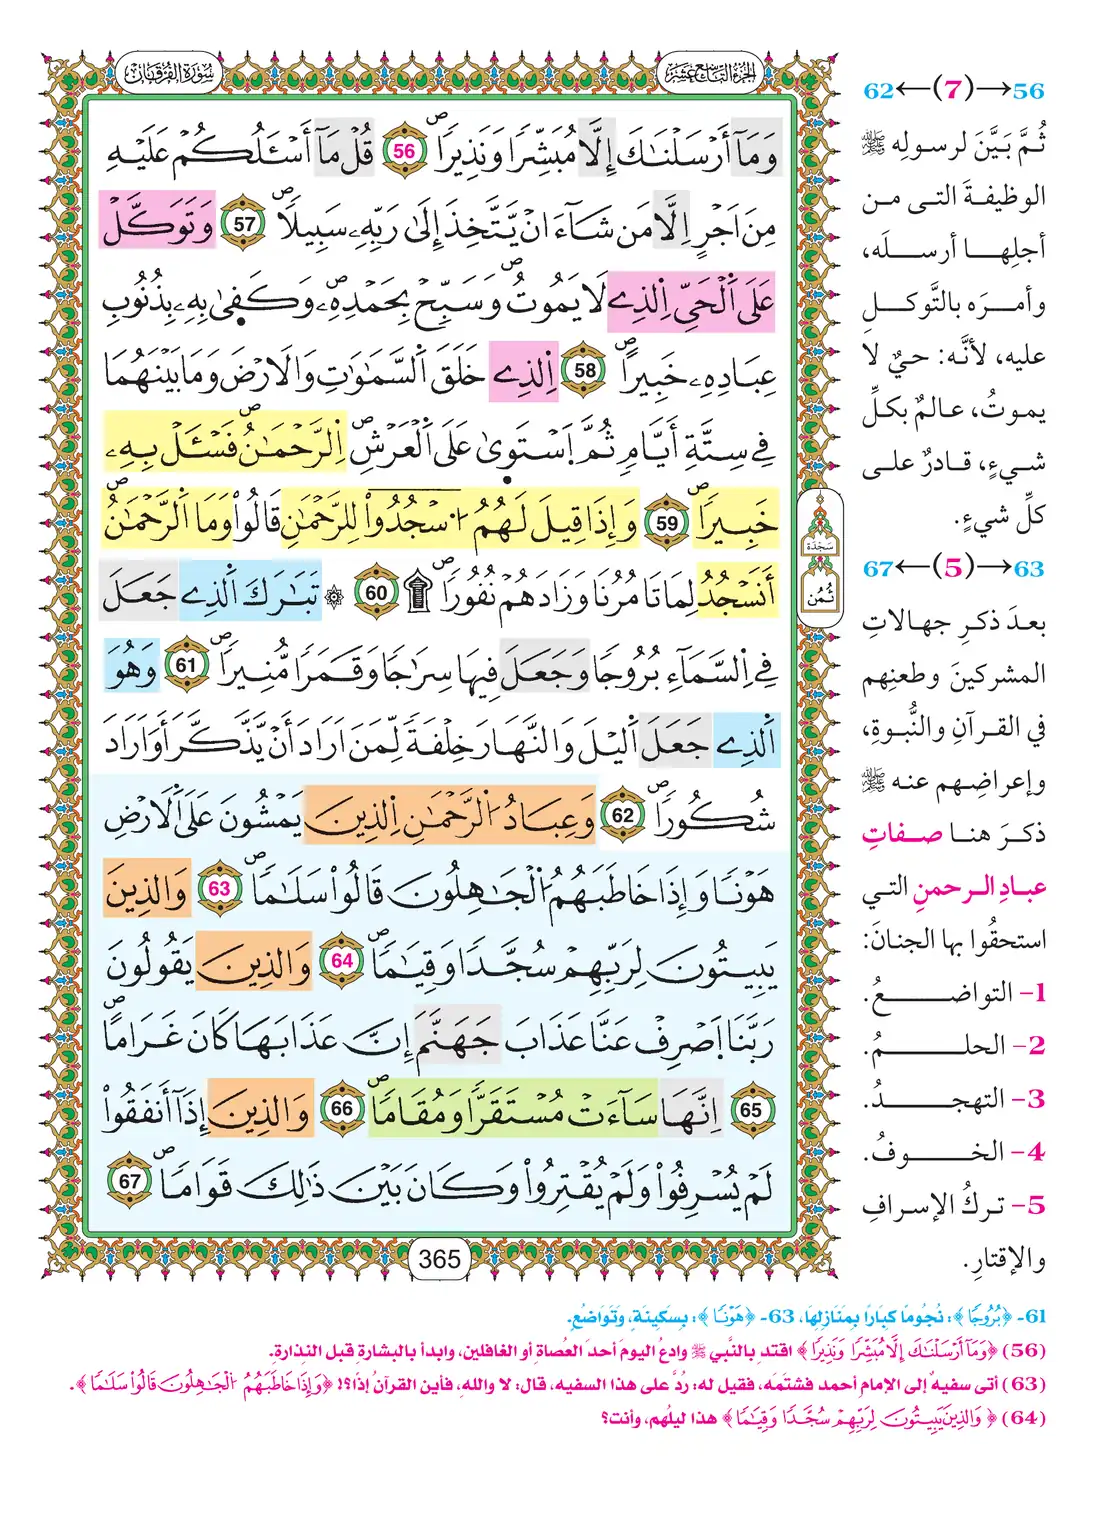 الجزء التاسع عشر
سورة الفرقان
وَمَآ أَرْسَلْنَٰكَ إِلَّا مُبَشِّرٗا وَنَذِيرٗاۖ 56 قُلْ مَآ أَسْـَٔلُكُمْ عَلَيْهِ
مِنَ اَجْرٍ اِلَّا مَن شَآءَ انْ يَّتَّخِذَ إِلَىٰ رَبِّهِۦ سَبِيلٗاۖ 57 وَتَوَكَّلْ
عَلَى اَ۬لْحَيِّ اِ۬لذِے لَا يَمُوتُۖ وَسَبِّحْ بِحَمْدِهِۦۖ وَكَف۪ىٰ بِهِۦ بِذُنُوبِ
عِبَادِهِۦ خَبِيراًۖ 58 اِ۬لذِے خَلَقَ اَ۬لسَّمَٰوَٰتِ وَالَارْضَ وَمَا بَيْنَهُمَا
فِے سِتَّةِ أَيَّامٖ ثُمَّ اَ۪سْتَو۪ىٰ عَلَى اَ۬لْعَرْشِۖ اِ۬لرَّحْمَٰنُۖ فَسْـَٔلْ بِهِۦ
خَبِيراٗۖ 59 وَإِذَا قِيلَ لَهُمُ اُ۟سْجُدُواْ لِلرَّحْمَٰنِ قَالُواْ وَمَا اَ۬لرَّحْمَٰنُۖ
أَنَسْجُدُ لِمَا تَامُرُنَا وَزَادَهُمْ نُفُوراٗۖ ۩ 60 ۞ تَبَٰرَكَ اَ۬لذِے جَعَلَ
فِے اِ۬لسَّمَآءِ بُرُوجاٗ وَجَعَلَ فِيهَا سِرَٰجاٗ وَقَمَراٗ مُّنِيراٗۖ 61 وَهُوَ
اَ۬لذِے جَعَلَ اَ۬ليْلَ وَالنَّهَارَ خِلْفَةٗ لِّمَنَ اَرَادَ أَنْ يَّذَّكَّرَ أَوَ اَرَادَ
شُكُوراٗۖ 62 وَعِبَادُ اُ۬لرَّحْمَٰنِ اِ۬لذِينَ يَمْشُونَ عَلَى اَ۬لَارْضِ
هَوْناٗ وَإِذَا خَاطَبَهُمُ اُ۬لْجَٰهِلُونَ قَالُواْ سَلَٰماٗۖ 63 وَالذِينَ
يَبِيتُونَ لِرَبِّهِمْ سُجَّداٗ وَقِيَٰماٗۖ 64 وَالذِينَ يَقُولُونَ
رَبَّنَا اَ۪صْرِفْ عَنَّا عَذَابَ جَهَنَّمَ إِنَّ عَذَابَهَا كَانَ غَرَاماًۖ
65 اِنَّهَا سَآءَتْ مُسْتَقَرّاٗ وَمُقَاماٗۖ 66 وَالذِينَ إِذَآ أَنفَقُواْ
لَمْ يُسْرِفُواْ وَلَمْ يُقْتِرُواْ وَكَانَ بَيْنَ ذَٰلِكَ قَوَاماٗۖ 67
365
سَجْدَة
ثُمُن
56→(7)←62
ثُمَّ بَيَّنَ لرسولِه ﷺ
الوظيفةَ التى من
أجلِها أرسلَه،
وأمرَه بالتَّوكلِ
عليه، لأنَّه: حيٌ لا
يموتُ، عالمٌ بكلِّ
شيءٍ، قادرٌ على
كلِّ شيءٍ.
63→(5)←67
بعدَ ذكرِ جهالاتِ
المشركينَ وطعنِهم
في القرآنِ والنُّبوةِ،
وإعراضِهم عنه ﷺ
ذكرَ هنا صفاتِ
عبادِ الرحمنِ التي
استحقُوا بها الجنانَ:
1- التواضعُ.
2- الحلمُ.
3- التهجدُ.
4- الخوفُ.
5- تركُ الإسرافِ
والإقتارِ.
61- ﴿بُرُوجًا﴾: نُجُومًا كِبَارًا بِمَنَازِلِهَا، 63- ﴿هَوْنًا﴾: بِسَكِينَةٍ، وَتَوَاضُعٍ.
(56) ﴿وَمَآ أَرْسَلْنَٰكَ إِلَّا مُبَشِّرًا وَنَذِيرًا﴾ اقتدِ بالنَّبي ﷺ وادعُ اليومَ أحدَ العصاةِ أو الغافلين، وابدأ بالبشارةِ قبل النِذارةِ.
(63) أتى سفيهٌ إلى الإمامِ أحمد فشتمَه، فقيل له: رُدَّ على هذا السفيه، قال: لا والله، فأين القرآنُ إذًا؟! ﴿وَإِذَا خَاطَبَهُمُ اُ۬لْجَٰهِلُونَ قَالُواْ سَلَٰمًا﴾.
(64) ﴿وَالذِينَ يَبِيتُونَ لِرَبِّهِمْ سُجَّدًا وَقِيَٰمًا﴾ هذا ليلُهم، وأنت؟